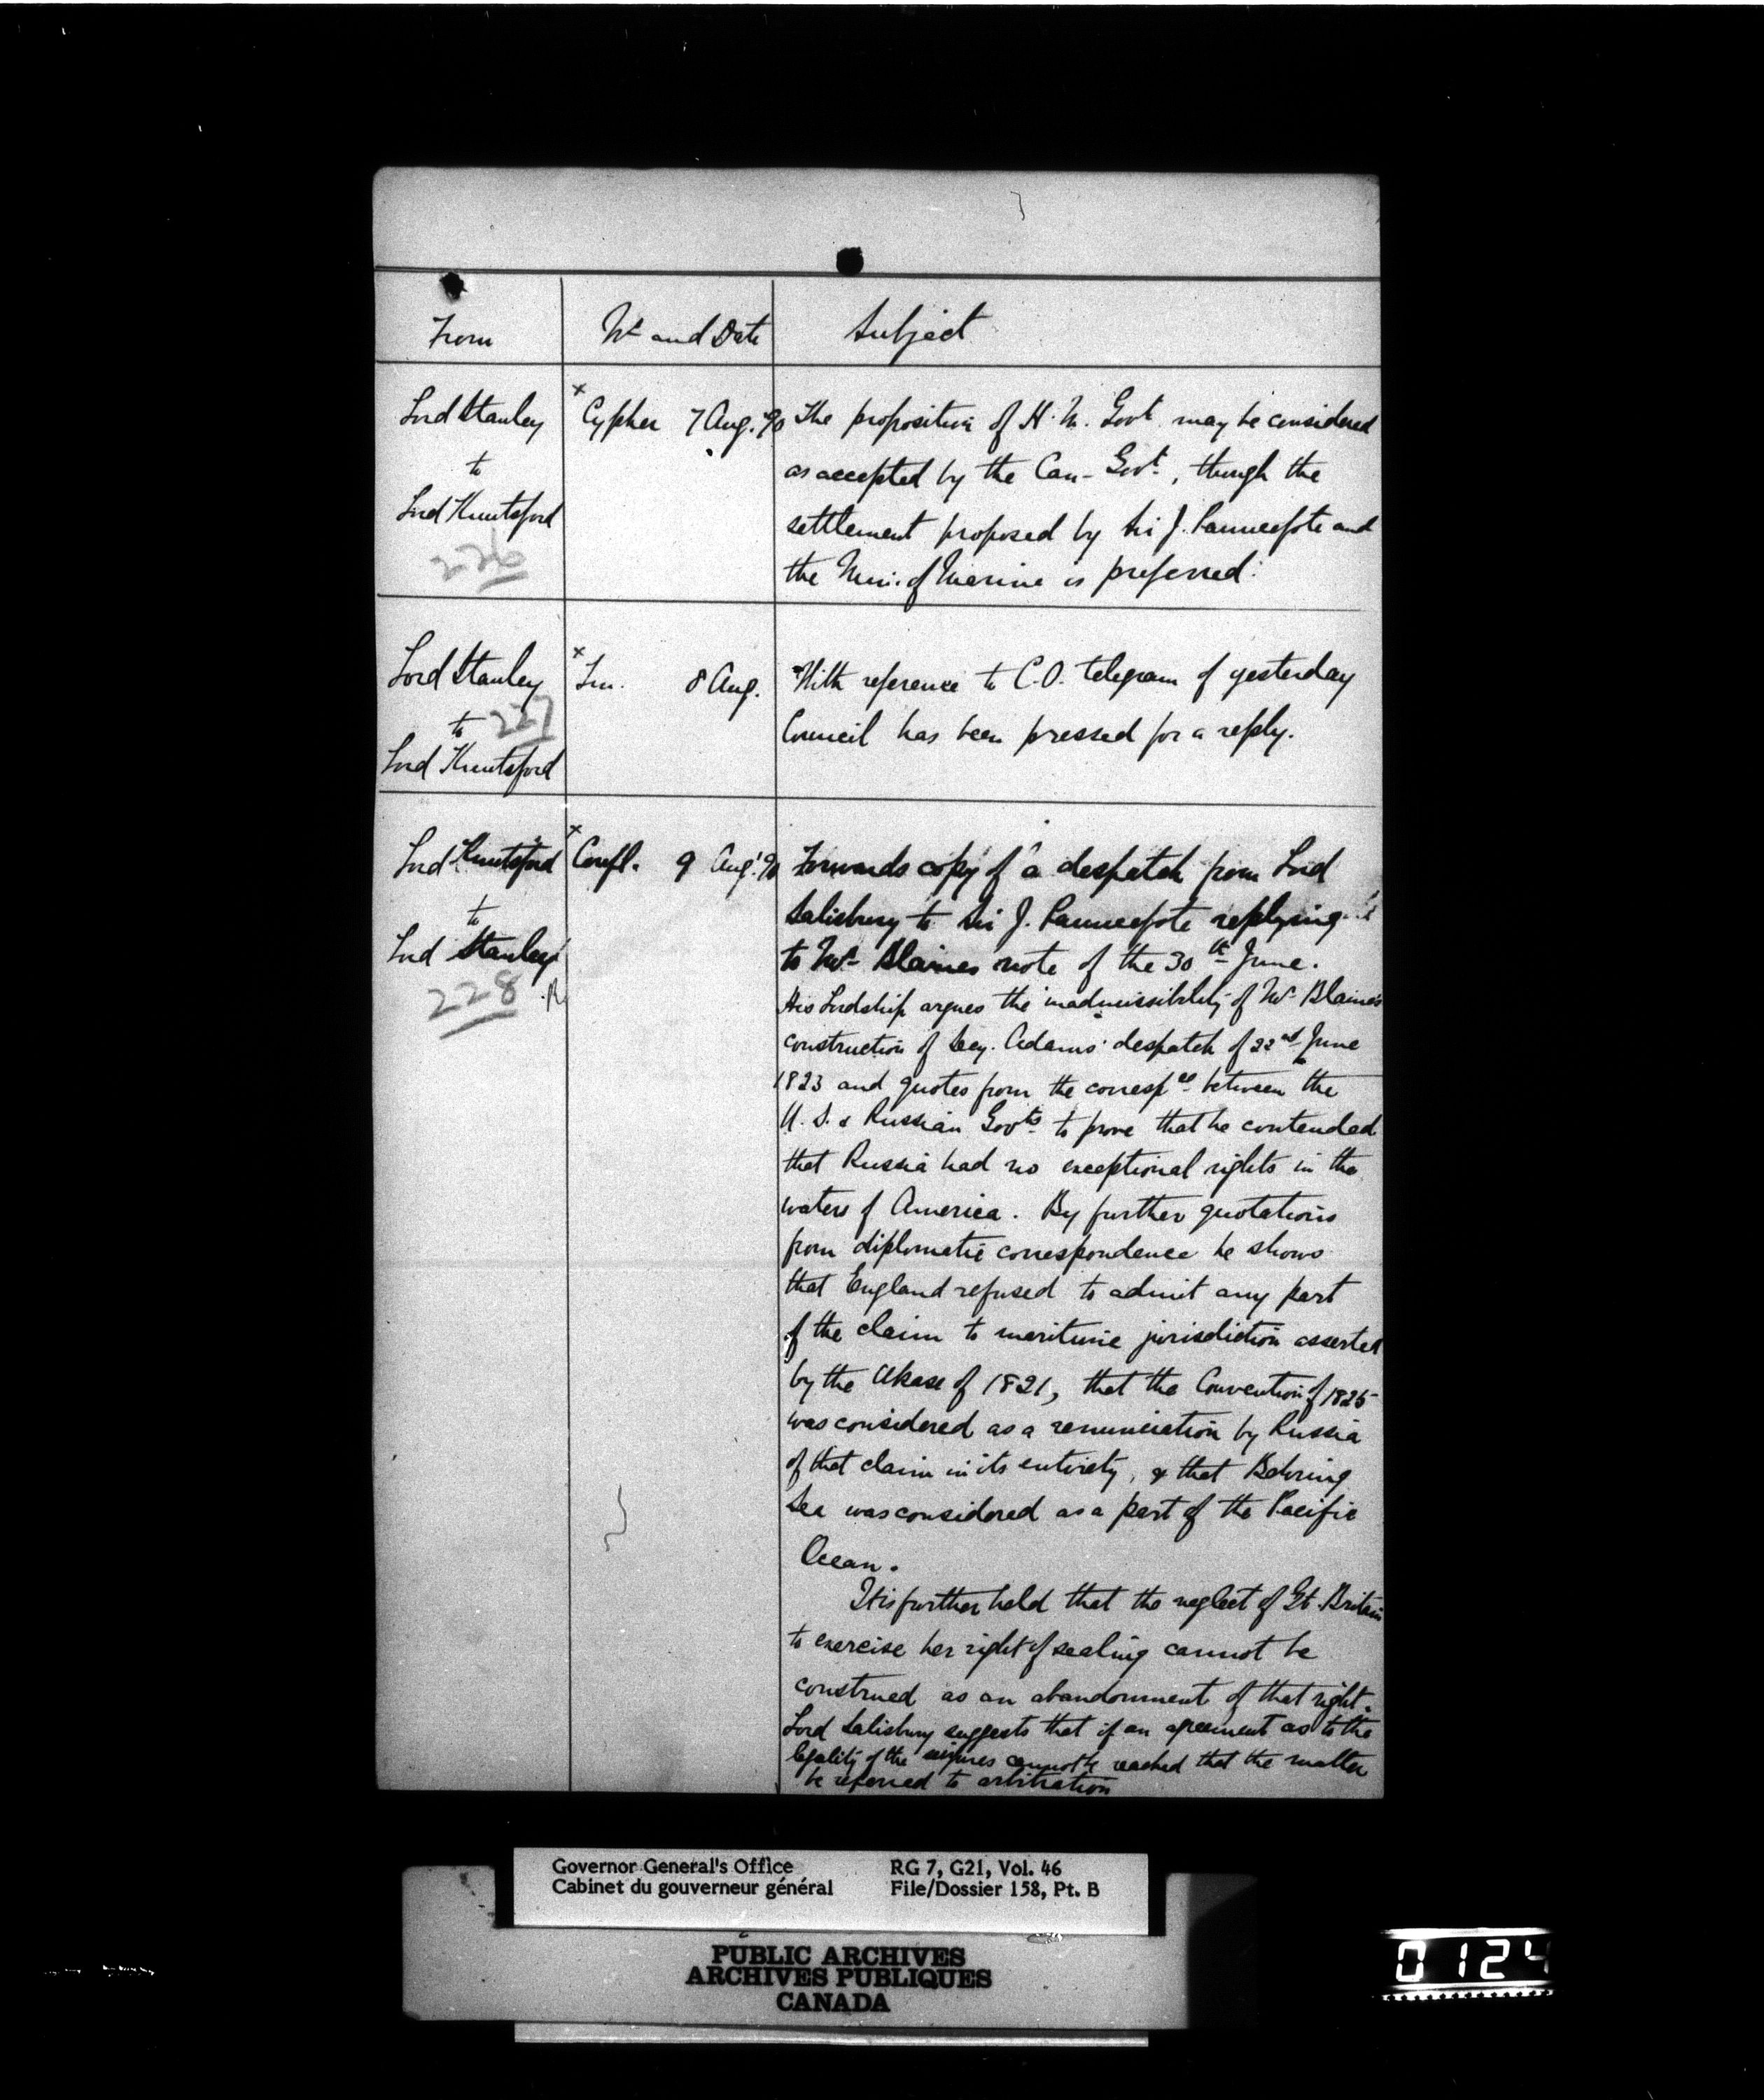 From
No and Date
Subject
Lord Stanley
to
Lord Knutsford
226
x Cypher 7 Aug. '90
The proposition of H. M. Govt may be considered
as accepted by the Can- Govt, though the
settlement proposed by Sir J. Pauncefote and
the Min. of Marine is preferred.
Lord Stanley
to 227
Lord Knutsford
x 8 Aug.
With reference to C.O. telegram of yesterday
Council has been pressed for a reply.
Lord Knutsford
to
Lord Stanley
228
x Confl. 9 Aug '90
Forwards copy of a despatch from Lord
Salisbury to Sir J. Pauncefote replying
to Mr Blaines note of the 30th June.
His Lordship argues the inadmissibility of Mr Blaine's
construction of Secy. Adams' despatch of 22nd June
1823 and quotes from the correspce between the
U. S. & Russian Govts to prove that he contended
that Russia had no exceptional rights in the
waters of America. By further quotations
from diplomatic correspondence he shows
that England refused to admit any part
of the claim to maritime jurisdiction asserted
by the Ukase of 1821, that the Convention of 1825
was considered as a renunciation by Russia
of that claim in its entirety, & that Behring
Sea was considered as a part of the Pacific
Ocean.
It is further held that the neglect of Gt. Britain
to exercise her right of sealing cannot be
construed as an abandonment of that right.
Lord Salisbury suggests that if an agreement as to the
legality of the seizures cannot be reached that the matter
be referred to arbitration
Governor General's Office
Cabinet du gouverneur général
RG 7, G21, Vol. 46
File/Dossier 158, Pt. B
PUBLIC ARCHIVES
ARCHIVES PUBLIQUES
CANADA
0124